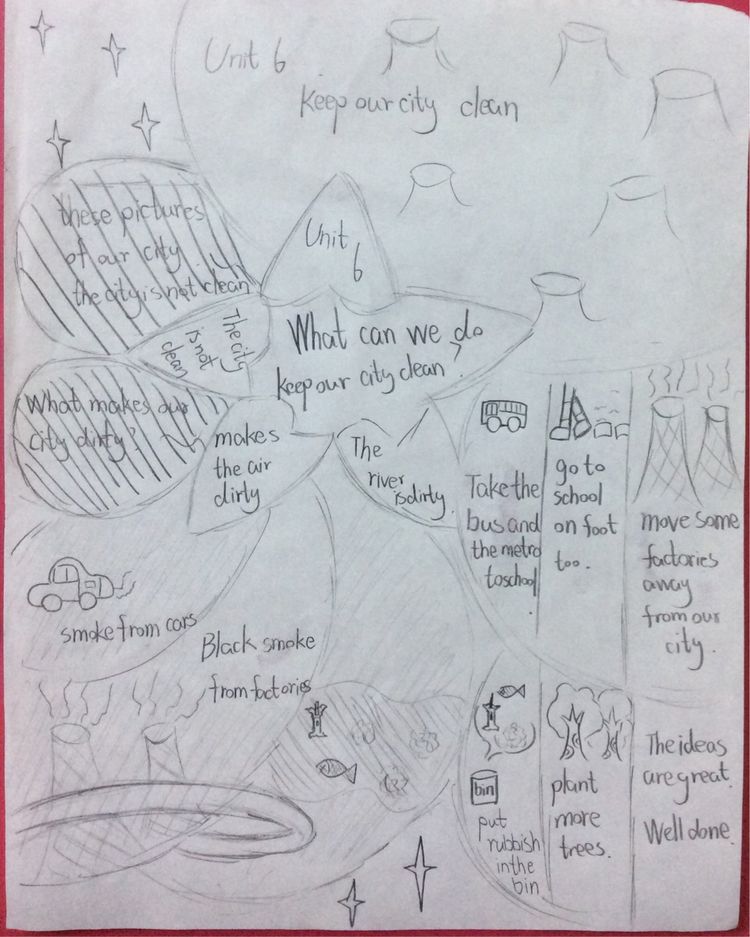 Unit 6
Keep our city clean
these pictures
of our city
the city is not clean
Unit
6
The city
is not
clean
What can we do
keep our city clean?
What makes our
city dirty?
makes
the air
dirty
The
river
is dirty.
Take the
bus and
the metro
to school
.
go to
school
on foot
too.
move some
factories
away
from our
city.
smoke from cars
Black smoke
from factories
bin
put
rubbish
in the
bin
plant
more
trees.
The ideas
are great.
Well done.